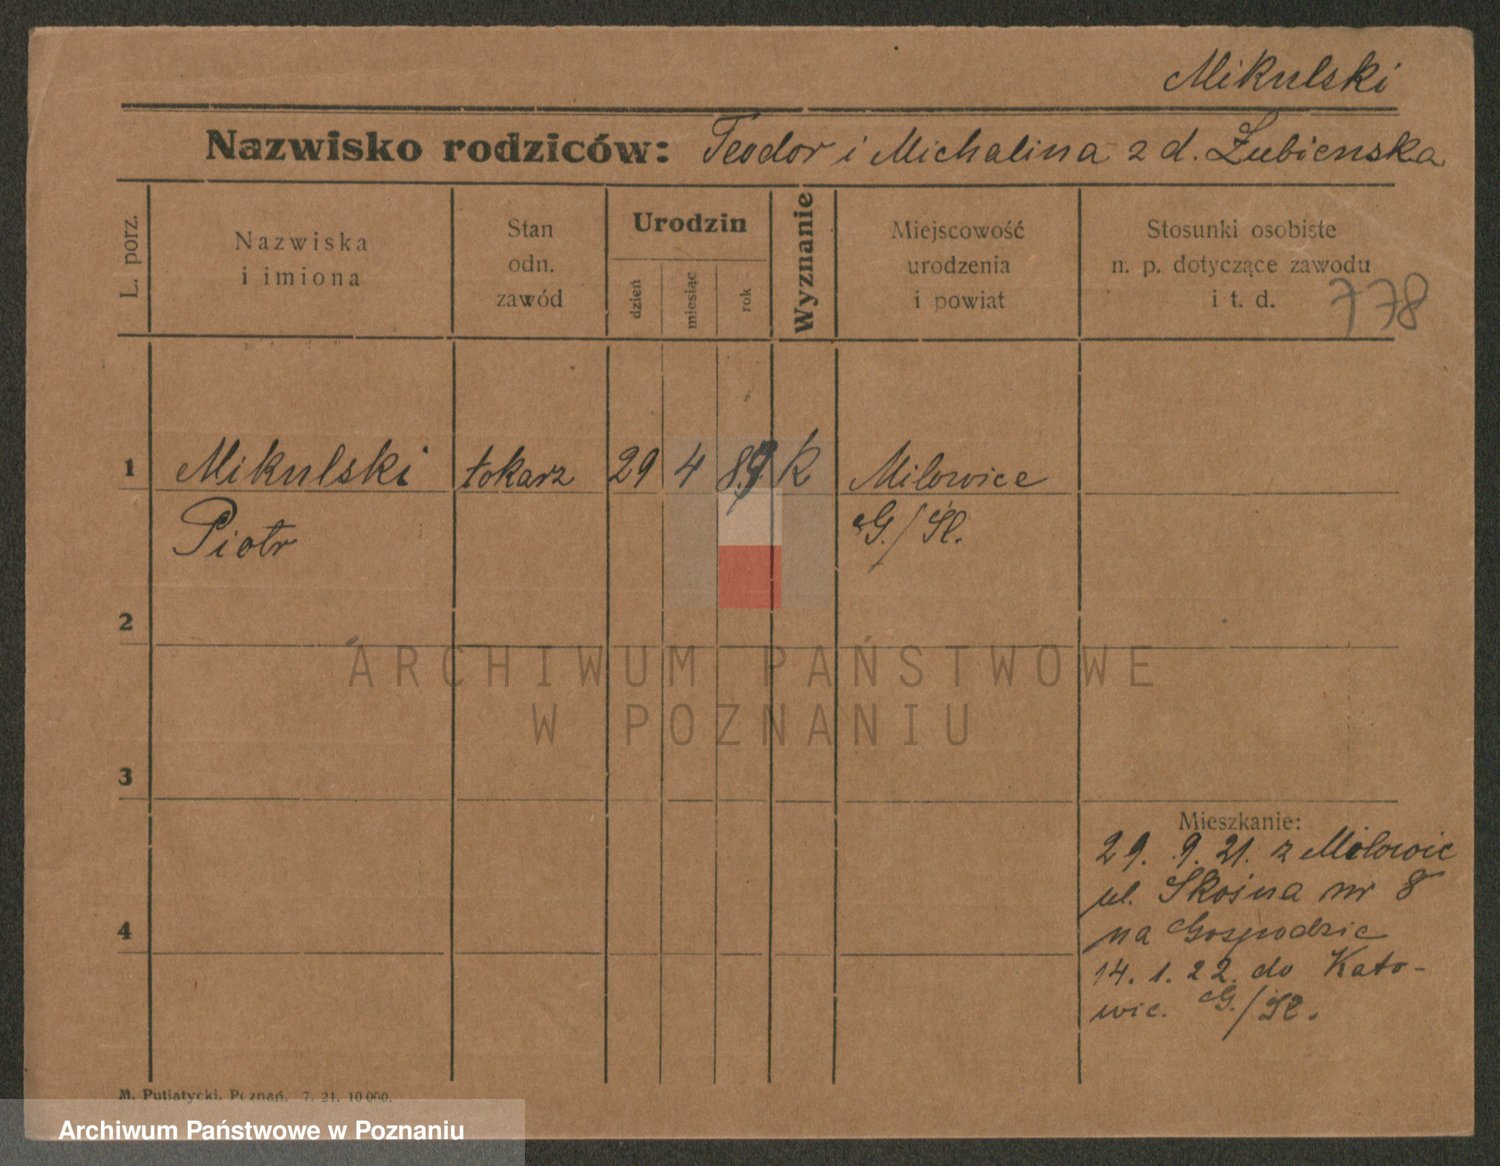 Mikulski
Nazwisko rodziców: Teodor i Michalina z d. Łubienska
L. porz.
Nazwiska
i imiona
Stan
odn.
zawód
Urodzin
dzień
miesiąc
rok
Wyznanie
Miejscowość
urodzenia
i powiat
Stosunki osobiste
n. p. dotyczące zawodu
i t. d.
778
1 Mikulski tokarz 29 4 89 k Milowice
Piotr G./Śl.
2
ARCHIWUM PAŃSTWOWE
W POZNANIU
3
Mieszkanie:
29. 9. 21. z Milowic
ul. Skośna nr 8
na Gospodzie
4
14. 1. 22. do Kato-
wic. G./Śl.
M. Putiatycki, Poznań. 7. 21. 10 000.
Archiwum Państwowe w Poznaniu